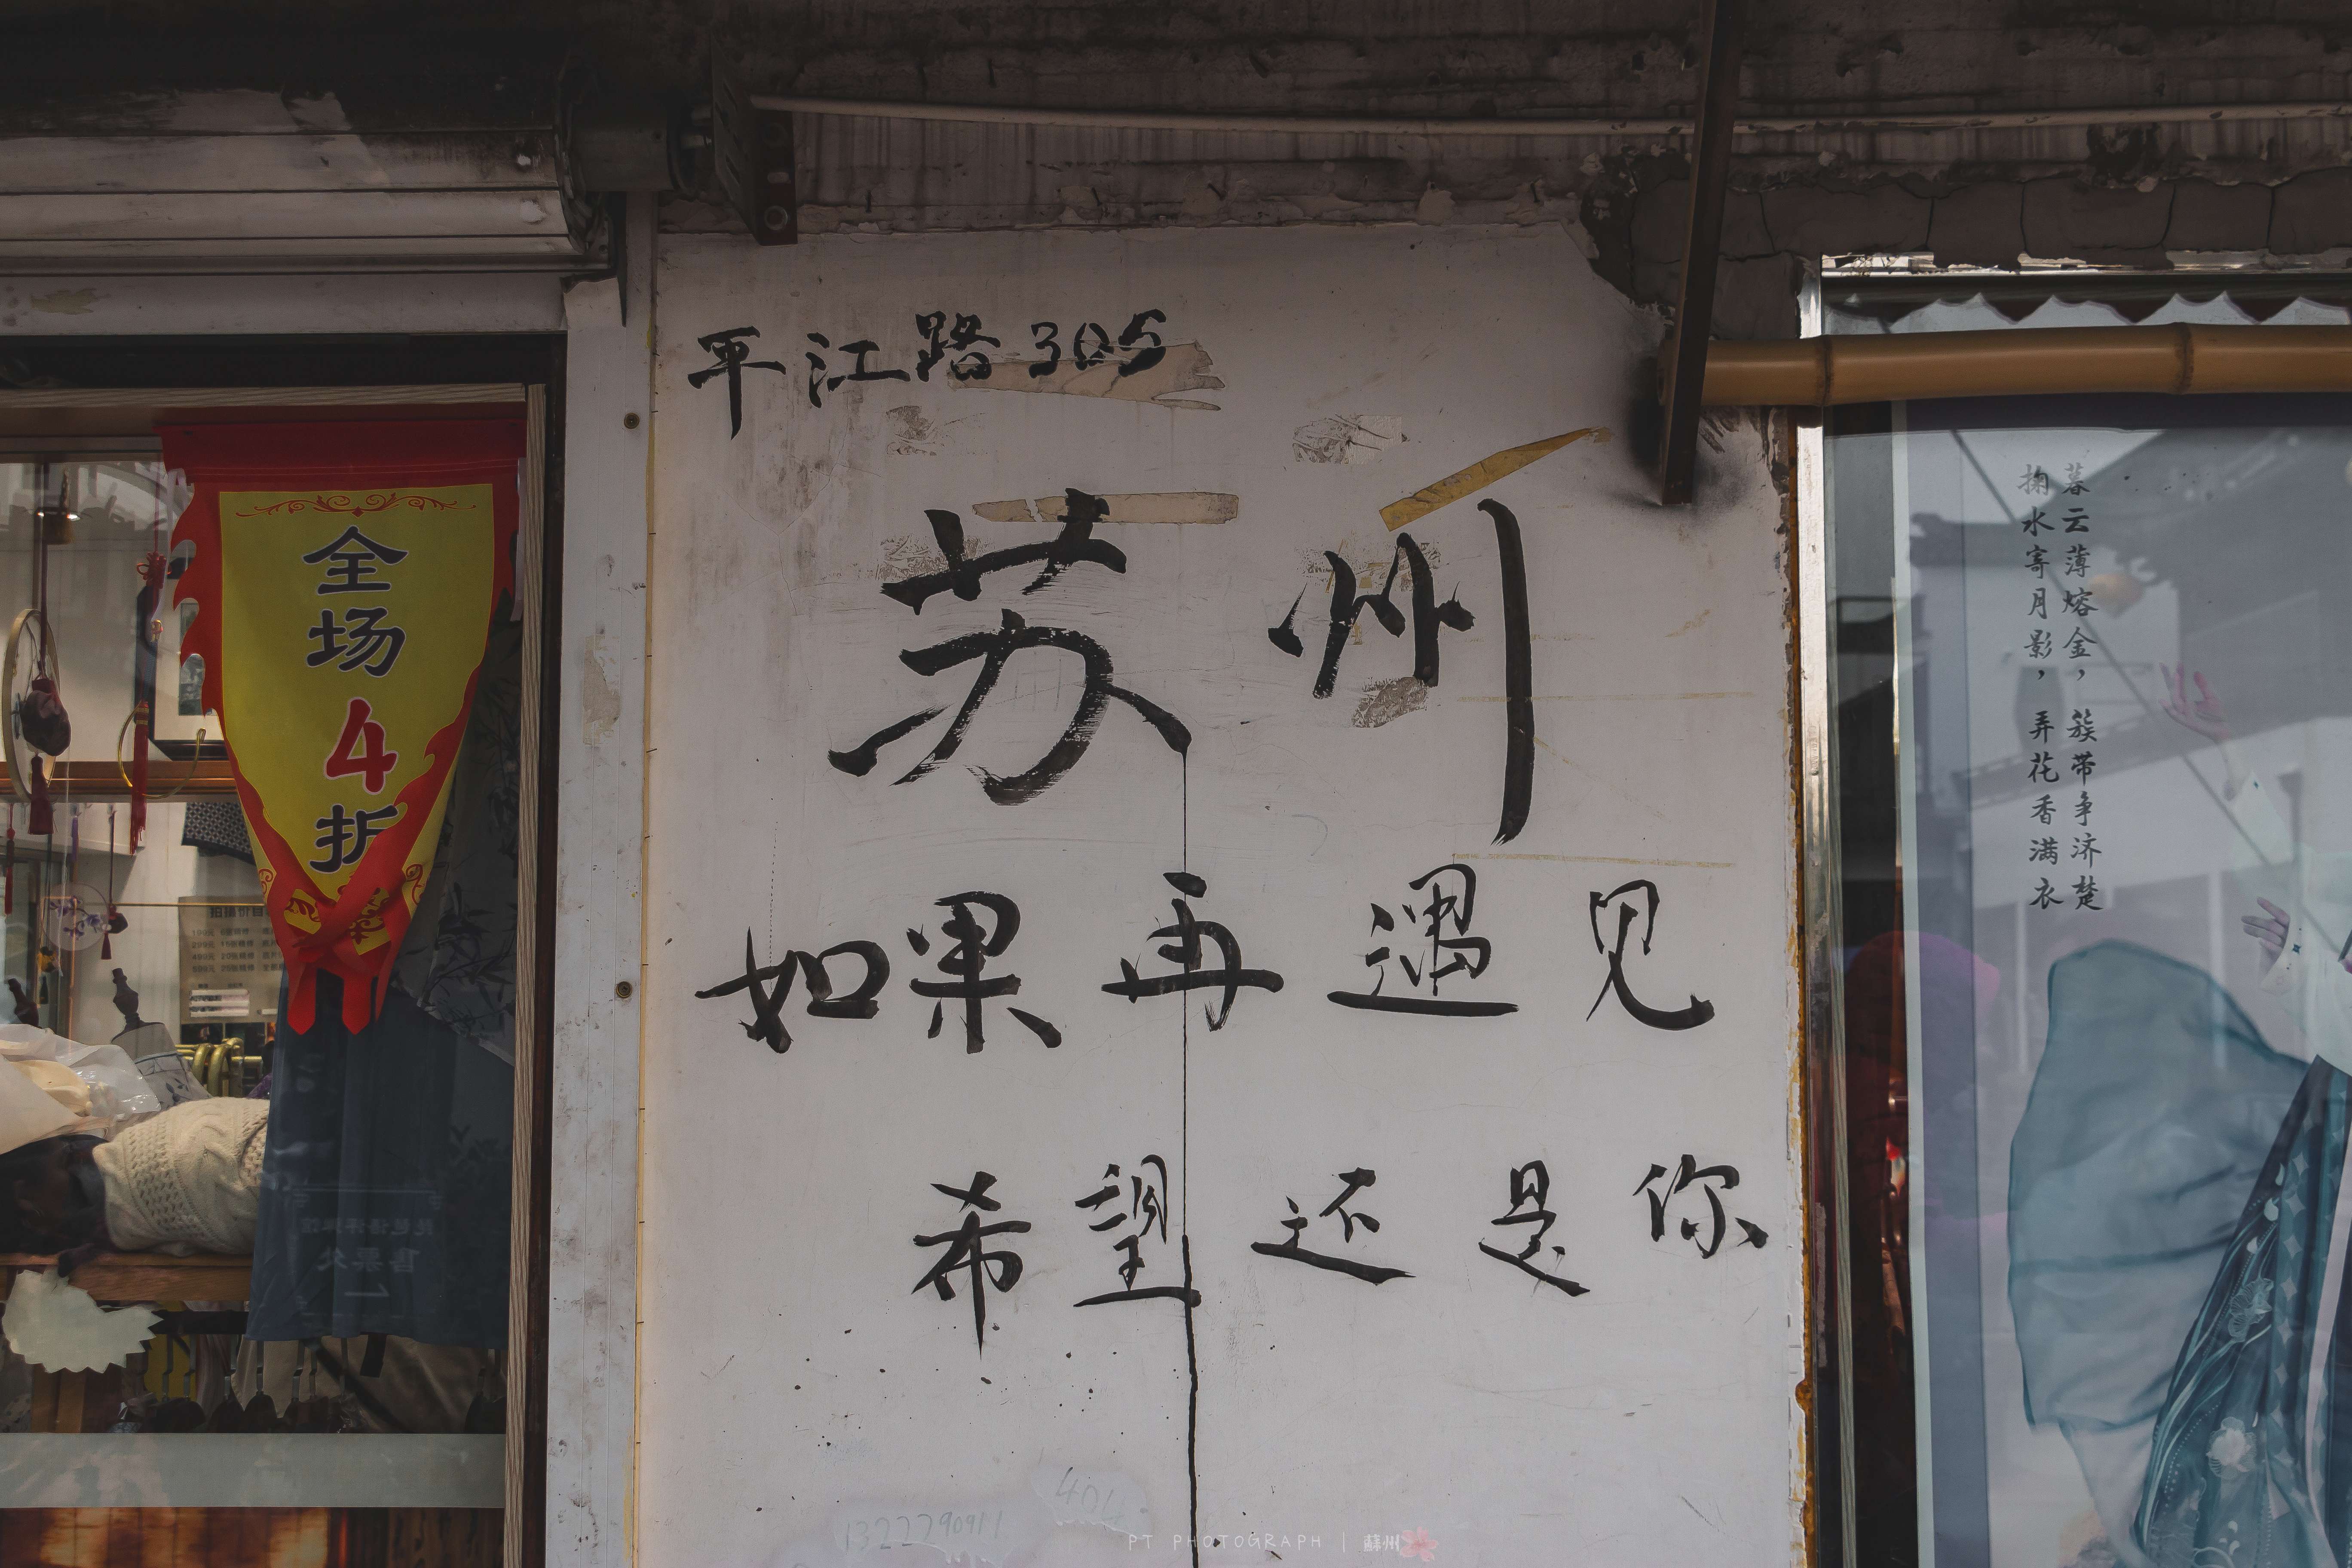 平江路305
苏州
如果再遇见
希望还是你
全场4折
暮云薄熔金，簇带争济楚
掬水寄月影，弄花香满衣
售票处
401
PT PHOTOGRAPH | 蘇州